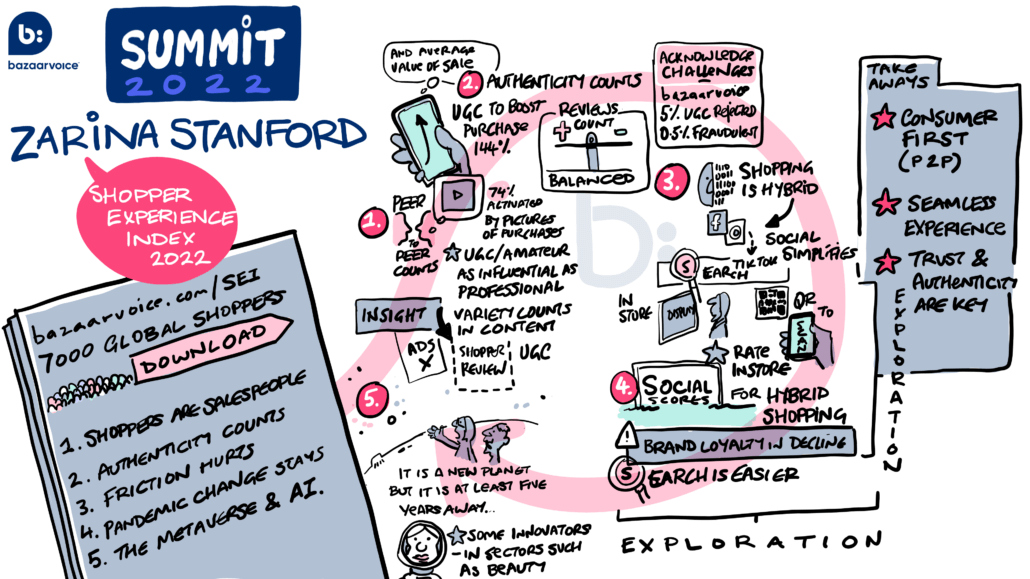 b:
bazaarvoice
SUMMIT
2022
ZARINA STANFORD
SHOPPER
EXPERIENCE
INDEX
2022
bazaarvoice.com/SEI
7000 GLOBAL SHOPPERS
DOWNLOAD
1. SHOPPERS ARE SALESPEOPLE
2. AUTHENTICITY COUNTS
3. FRICTION HURTS
4. PANDEMIC CHANGE STAYS
5. THE METAVERSE & A.I.
AND AVERAGE
VALUE OF SALE
2. AUTHENTICITY COUNTS
UGC TO BOOST
PURCHASE
144%
REVIEWS
COUNT
+ -
BALANCED
1. PEER
TO
PEER
COUNTS
74%
ACTIVATED
BY PICTURES
OF PURCHASES
UGC/AMATEUR
AS INFLUENTIAL AS
PROFESSIONAL
VARIETY COUNTS
IN CONTENT
INSIGHT
ADS
X
SHOPPER
REVIEW
UGC
5.
IT IS A NEW PLANET
BUT IT IS AT LEAST FIVE
YEARS AWAY...
SOME INNOVATORS
- IN SECTORS SUCH
AS BEAUTY
ACKNOWLEDGE
CHALLENGES
bazaarvoice
5% UGC REJECTED
0.5% FRAUDULENT
3. SHOPPING
IS HYBRID
f
SOCIAL
SIMPLIFIES
TIKTOK
SEARCH
IN
STORE
DISPLAY
QR
TO
RATE
INSTORE
4. SOCIAL
SCORES
FOR HYBRID
SHOPPING
! BRAND LOYALTY IN DECLINE
SEARCH IS EASIER
EXPLORATION
EXPLORATION
TAKE
AWAYS
CONSUMER
FIRST
(P2P)
SEAMLESS
EXPERIENCE
TRUST &
AUTHENTICITY
ARE KEY
b: